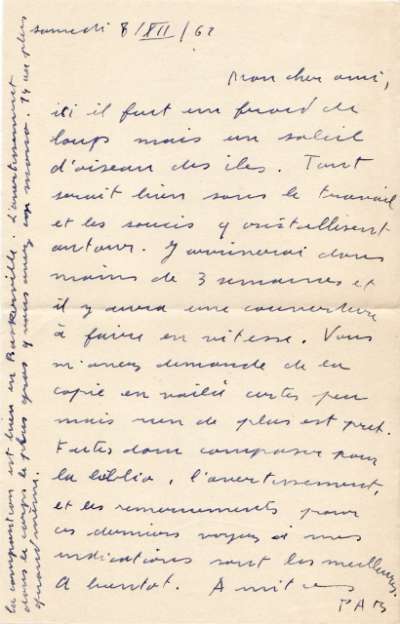 samedi 8/XII/62
Mon cher ami,
ici il fait un froid de
loups mais un soleil
d'oiseau des iles. Tout
serait bien sans le travail
et les soucis y cristallisent
autour. J'arriverai dans
moins de 3 semaines et
il y aura une couverture
à faire en vitesse. Vous
m'avez demandé de la
copie en voilà certes peu
mais rien de plus est pret.
Faites donc composer pour
la biblio, l'avertissement,
et les remerciements pour
ces derniers voyez si mes
indications sont les meilleures.
A bientot. Amitiés
PAB
la composition est bien en Baskerville. L'avertissement
dans le corps le plus gros que vous avez en mono. 14 ou plus
quand même.